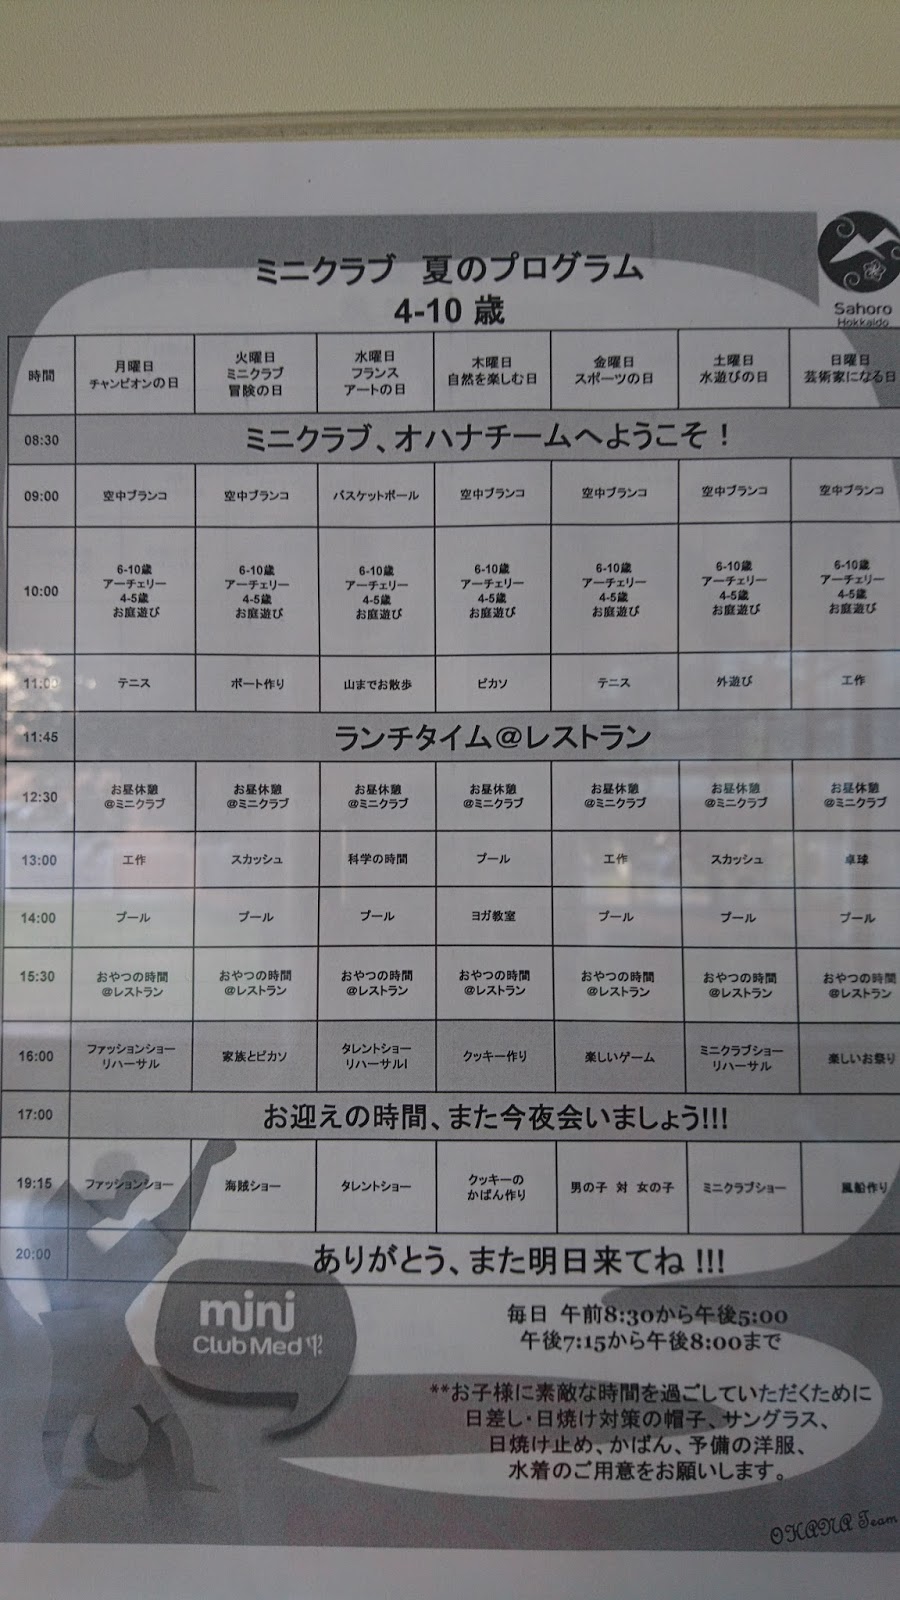 ミニクラブ 夏のプログラム
4-10 歳
Sahoro
Hokkaido
時間
月曜日
チャンピオンの日
火曜日
ミニクラブ
冒険の日
水曜日
フランス
アートの日
木曜日
自然を楽しむ日
金曜日
スポーツの日
土曜日
水遊びの日
日曜日
芸術家になる日
08:30
ミニクラブ、オハナチームへようこそ！
09:00
空中ブランコ
空中ブランコ
バスケットボール
空中ブランコ
空中ブランコ
空中ブランコ
空中ブランコ
10:00
6-10歳
アーチェリー
4-5歳
お庭遊び
6-10歳
アーチェリー
4-5歳
お庭遊び
6-10歳
アーチェリー
4-5歳
お庭遊び
6-10歳
アーチェリー
4-5歳
お庭遊び
6-10歳
アーチェリー
4-5歳
お庭遊び
6-10歳
アーチェリー
4-5歳
お庭遊び
6-10歳
アーチェリー
4-5歳
お庭遊び
11:00
テニス
ボート作り
山までお散歩
ピカソ
テニス
外遊び
工作
11:45
ランチタイム＠レストラン
12:30
お昼休憩
@ミニクラブ
お昼休憩
@ミニクラブ
お昼休憩
@ミニクラブ
お昼休憩
@ミニクラブ
お昼休憩
@ミニクラブ
お昼休憩
@ミニクラブ
お昼休憩
@ミニクラブ
13:00
工作
スカッシュ
科学の時間
プール
工作
スカッシュ
卓球
14:00
プール
プール
プール
ヨガ教室
プール
プール
プール
15:30
おやつの時間
@レストラン
おやつの時間
@レストラン
おやつの時間
@レストラン
おやつの時間
@レストラン
おやつの時間
@レストラン
おやつの時間
@レストラン
おやつの時間
@レストラン
16:00
ファッションショー
リハーサル
家族とピカソ
タレントショー
リハーサルl
クッキー作り
楽しいゲーム
ミニクラブショー
リハーサル
楽しいお祭り
17:00
お迎えの時間、また今夜会いましょう!!!
19:15
ファッションショー
海賊ショー
タレントショー
クッキーの
かばん作り
男の子 対 女の子
ミニクラブショー
風船作り
20:00
ありがとう、また明日来てね !!!
mini
Club Med
毎日 午前8:30から午後5:00
午後7:15から午後8:00まで
**お子様に素敵な時間を過ごしていただくために
日差し・日焼け対策の帽子、サングラス、
日焼け止め、かばん、予備の洋服、
水着のご用意をお願いします。
OHANA Team